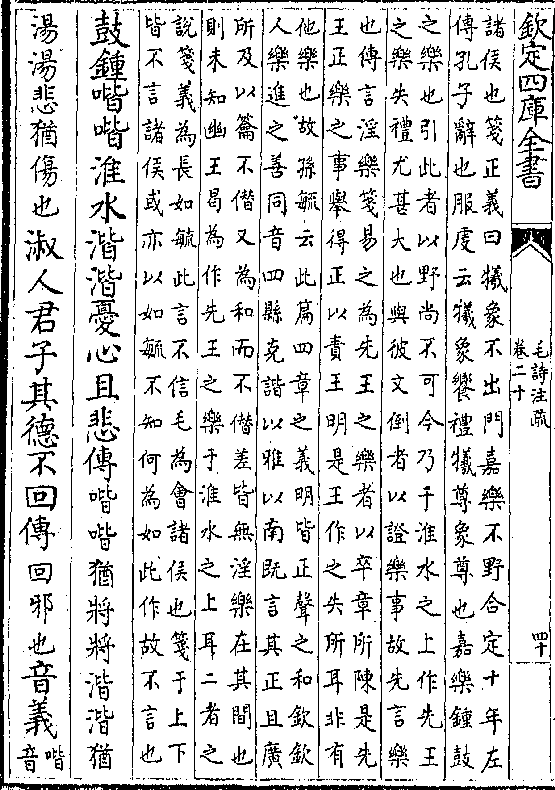 欽定四庫全書
毛詩注疏
卷二十
四十
諸侯也箋正義曰犧象不出門嘉樂不野合定十年左
傳孔子辭也服虔云犧象饗禮犧尊象尊也嘉樂鍾鼓
之樂也引此者以野尚不可今乃于淮水之上作先王
之樂失禮尤甚大也與彼文倒者以證樂事故先言樂
也傳言淫樂箋易之為先王之樂者以卒章所陳是先
王正樂之事舉得正以責王明是王作之失所耳非有
他樂也故孫毓云此篇四章之義明皆正聲之和欽欽
人樂進之善同音四縣克諧以雅以南既言其正且廣
所及以籥不僭又為和而不僭差皆無淫樂在其間也
則未知幽王曷為作先王之樂于淮水之上耳二者之
說箋義為長如毓此言不信毛為會諸侯也箋于上下
皆不言諸侯或亦以如毓不知何為如此作故不言也
鼓鍾喈喈淮水湝湝憂心且悲傳喈喈猶將將湝湝猶
湯湯悲猶傷也淑人君子其德不回傳回邪也音義喈
音